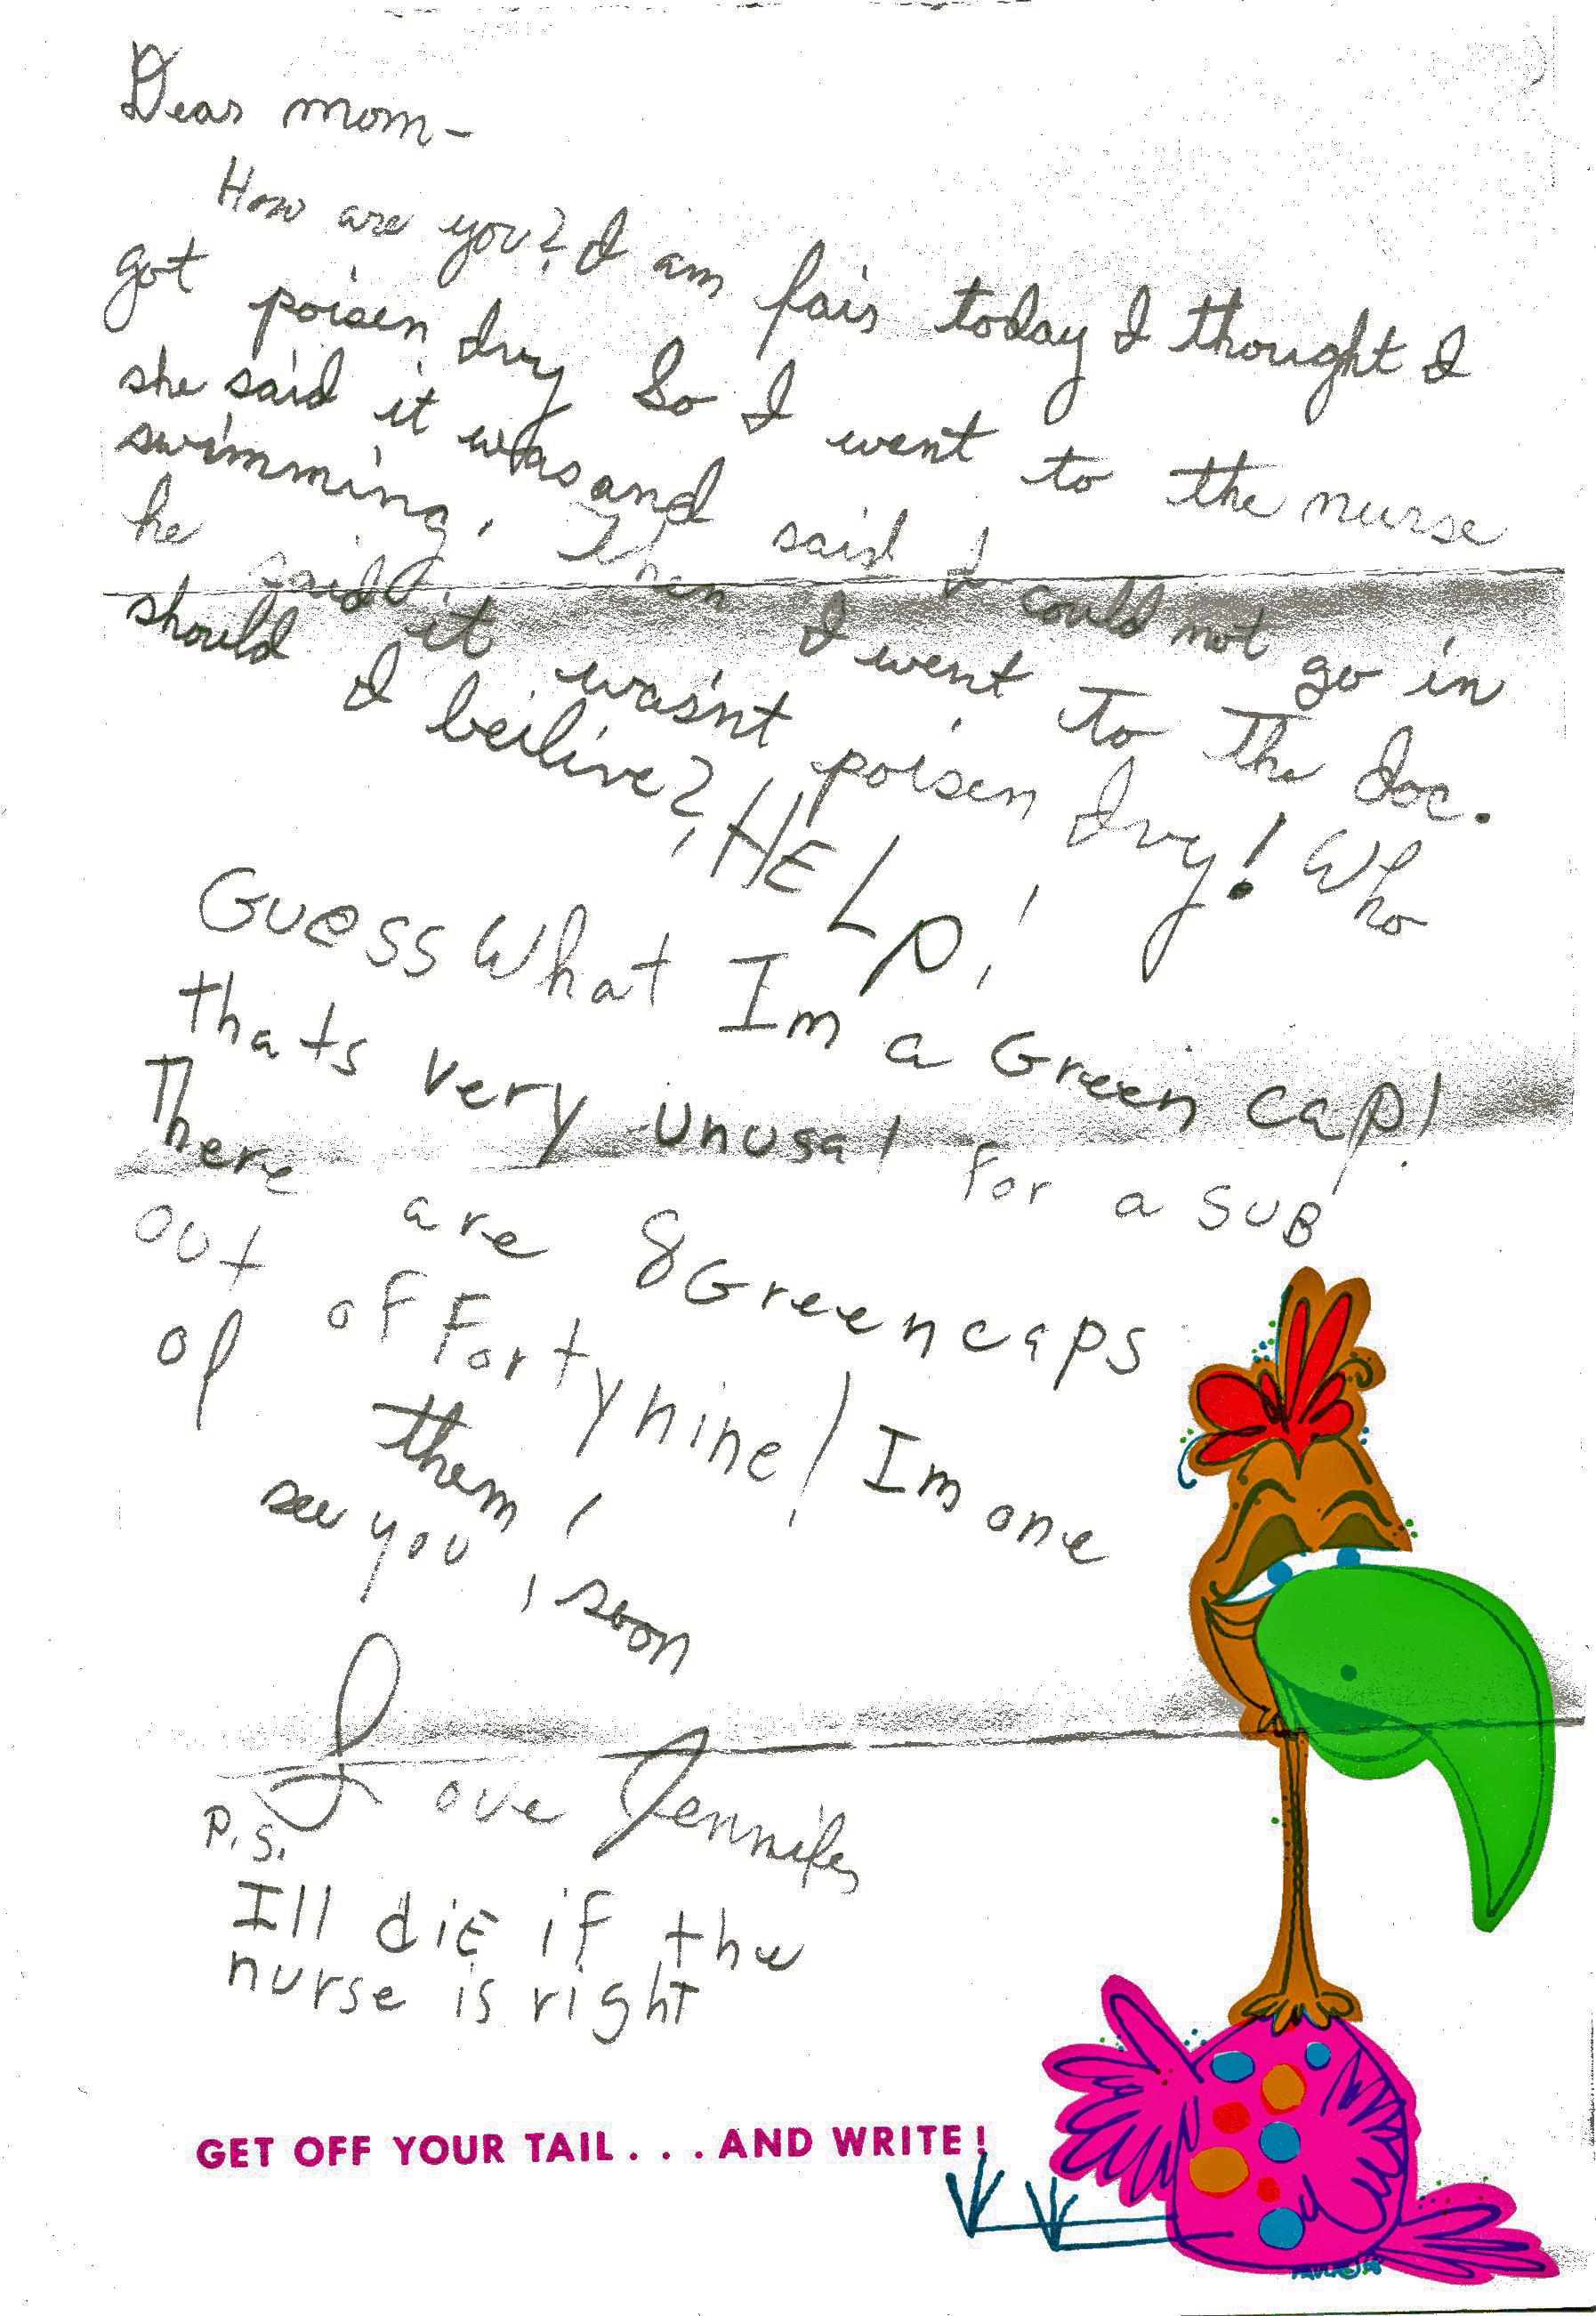 Dear mom-
How are you? I am fair today I thought I
got poisen Ivy So I went to the nurse
she said it was and said I could not go in
swimming. Then I went to the doc.
he said it wasn't poisen Ivy! Who
should I beilive?, HELP!
Guess What Im a Green cap!
thats very unusal for a SUB
There are 8 Greencaps
out of Fortynine! Im one
of them!
see you, soon
Love Jennifer
P.S.
Ill diE if the
nurse is right
GET OFF YOUR TAIL . . . AND WRITE!